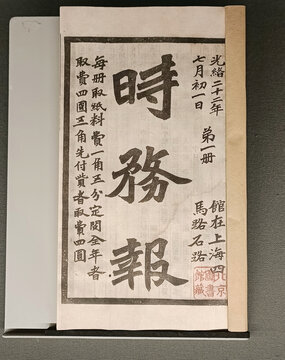 光緒二十二年
七月初一日
第一册
館在上海四
馬路石路
時務報
每册取紙料費一角五分定閱全年者
取費四圓三角先付貲者取費四圓
北京
圖書
館藏